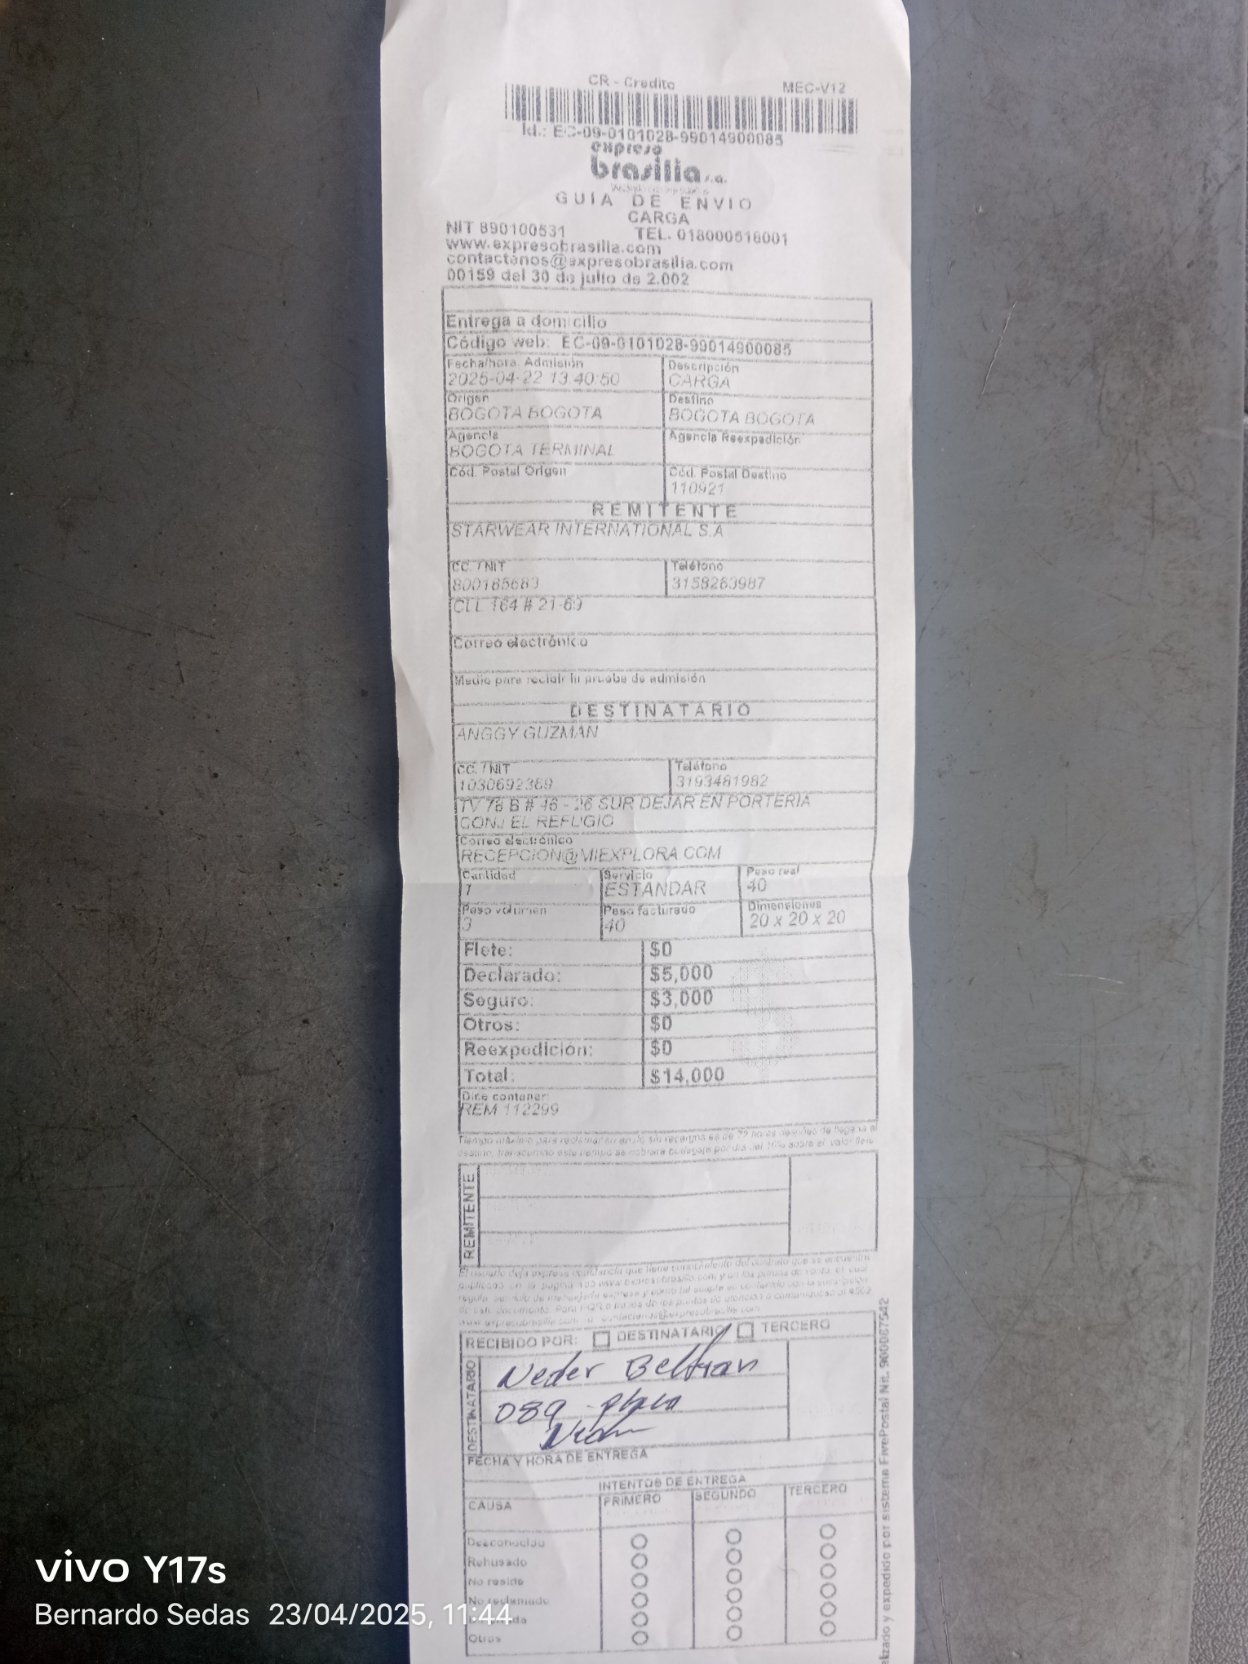 CR - Credito MEC-V12
Id.: EC-09-0101028-99014900085
expreso
brasilia s.a.
GUIA DE ENVIO
CARGA
NIT 890100531 TEL. 018000518001
www.expresobrasilia.com
contactanos@expresobrasilia.com
00159 del 30 de julio de 2.002
Entrega a domicilio
Código web: EC-09-0101028-99014900085
Fecha/hora. Admisión Descripción
2025-04-22 13:40:50 CARGA
Origen Destino
BOGOTA BOGOTA BOGOTA BOGOTA
Agencia Agencia Reexpedición
BOGOTA TERMINAL
Cód. Postal Origen Cód. Postal Destino
110921
REMITENTE
STARWEAR INTERNATIONAL S.A
CC. / NIT Teléfono
800165683 3158263987
CLL 164 # 21-69
Correo electrónico
Medio para recibir la prueba de admisión
DESTINATARIO
ANGGY GUZMAN
CC. / NIT Teléfono
1030692369 3193481982
TV 78 B # 46 - 26 SUR DEJAR EN PORTERIA
CONJ EL REFUGIO
Correo electrónico
RECEPCION@MIEXPLORA.COM
Cantidad Servicio Peso real
1 ESTANDAR 40
Peso volumen Peso facturado Dimensiones
3 40 20 x 20 x 20
Flete: $0
Declarado: $5,000
Seguro: $3,000
Otros: $0
Reexpedicion: $0
Total: $14,000
Dice contener
REM 112299
REMITENTE
RECIBIDO POR: DESTINATARIO TERCERO
DESTINATARIO
Neder Beltran
089 placa
FECHA Y HORA DE ENTREGA
INTENTOS DE ENTREGA
CAUSA PRIMERO SEGUNDO TERCERO
Desconocido
Rehusado
No reside
No reclamado
Otros
expedido por sistema FivePostal Nit. 900087542
vivo Y17s
Bernardo Sedas 23/04/2025, 11:44